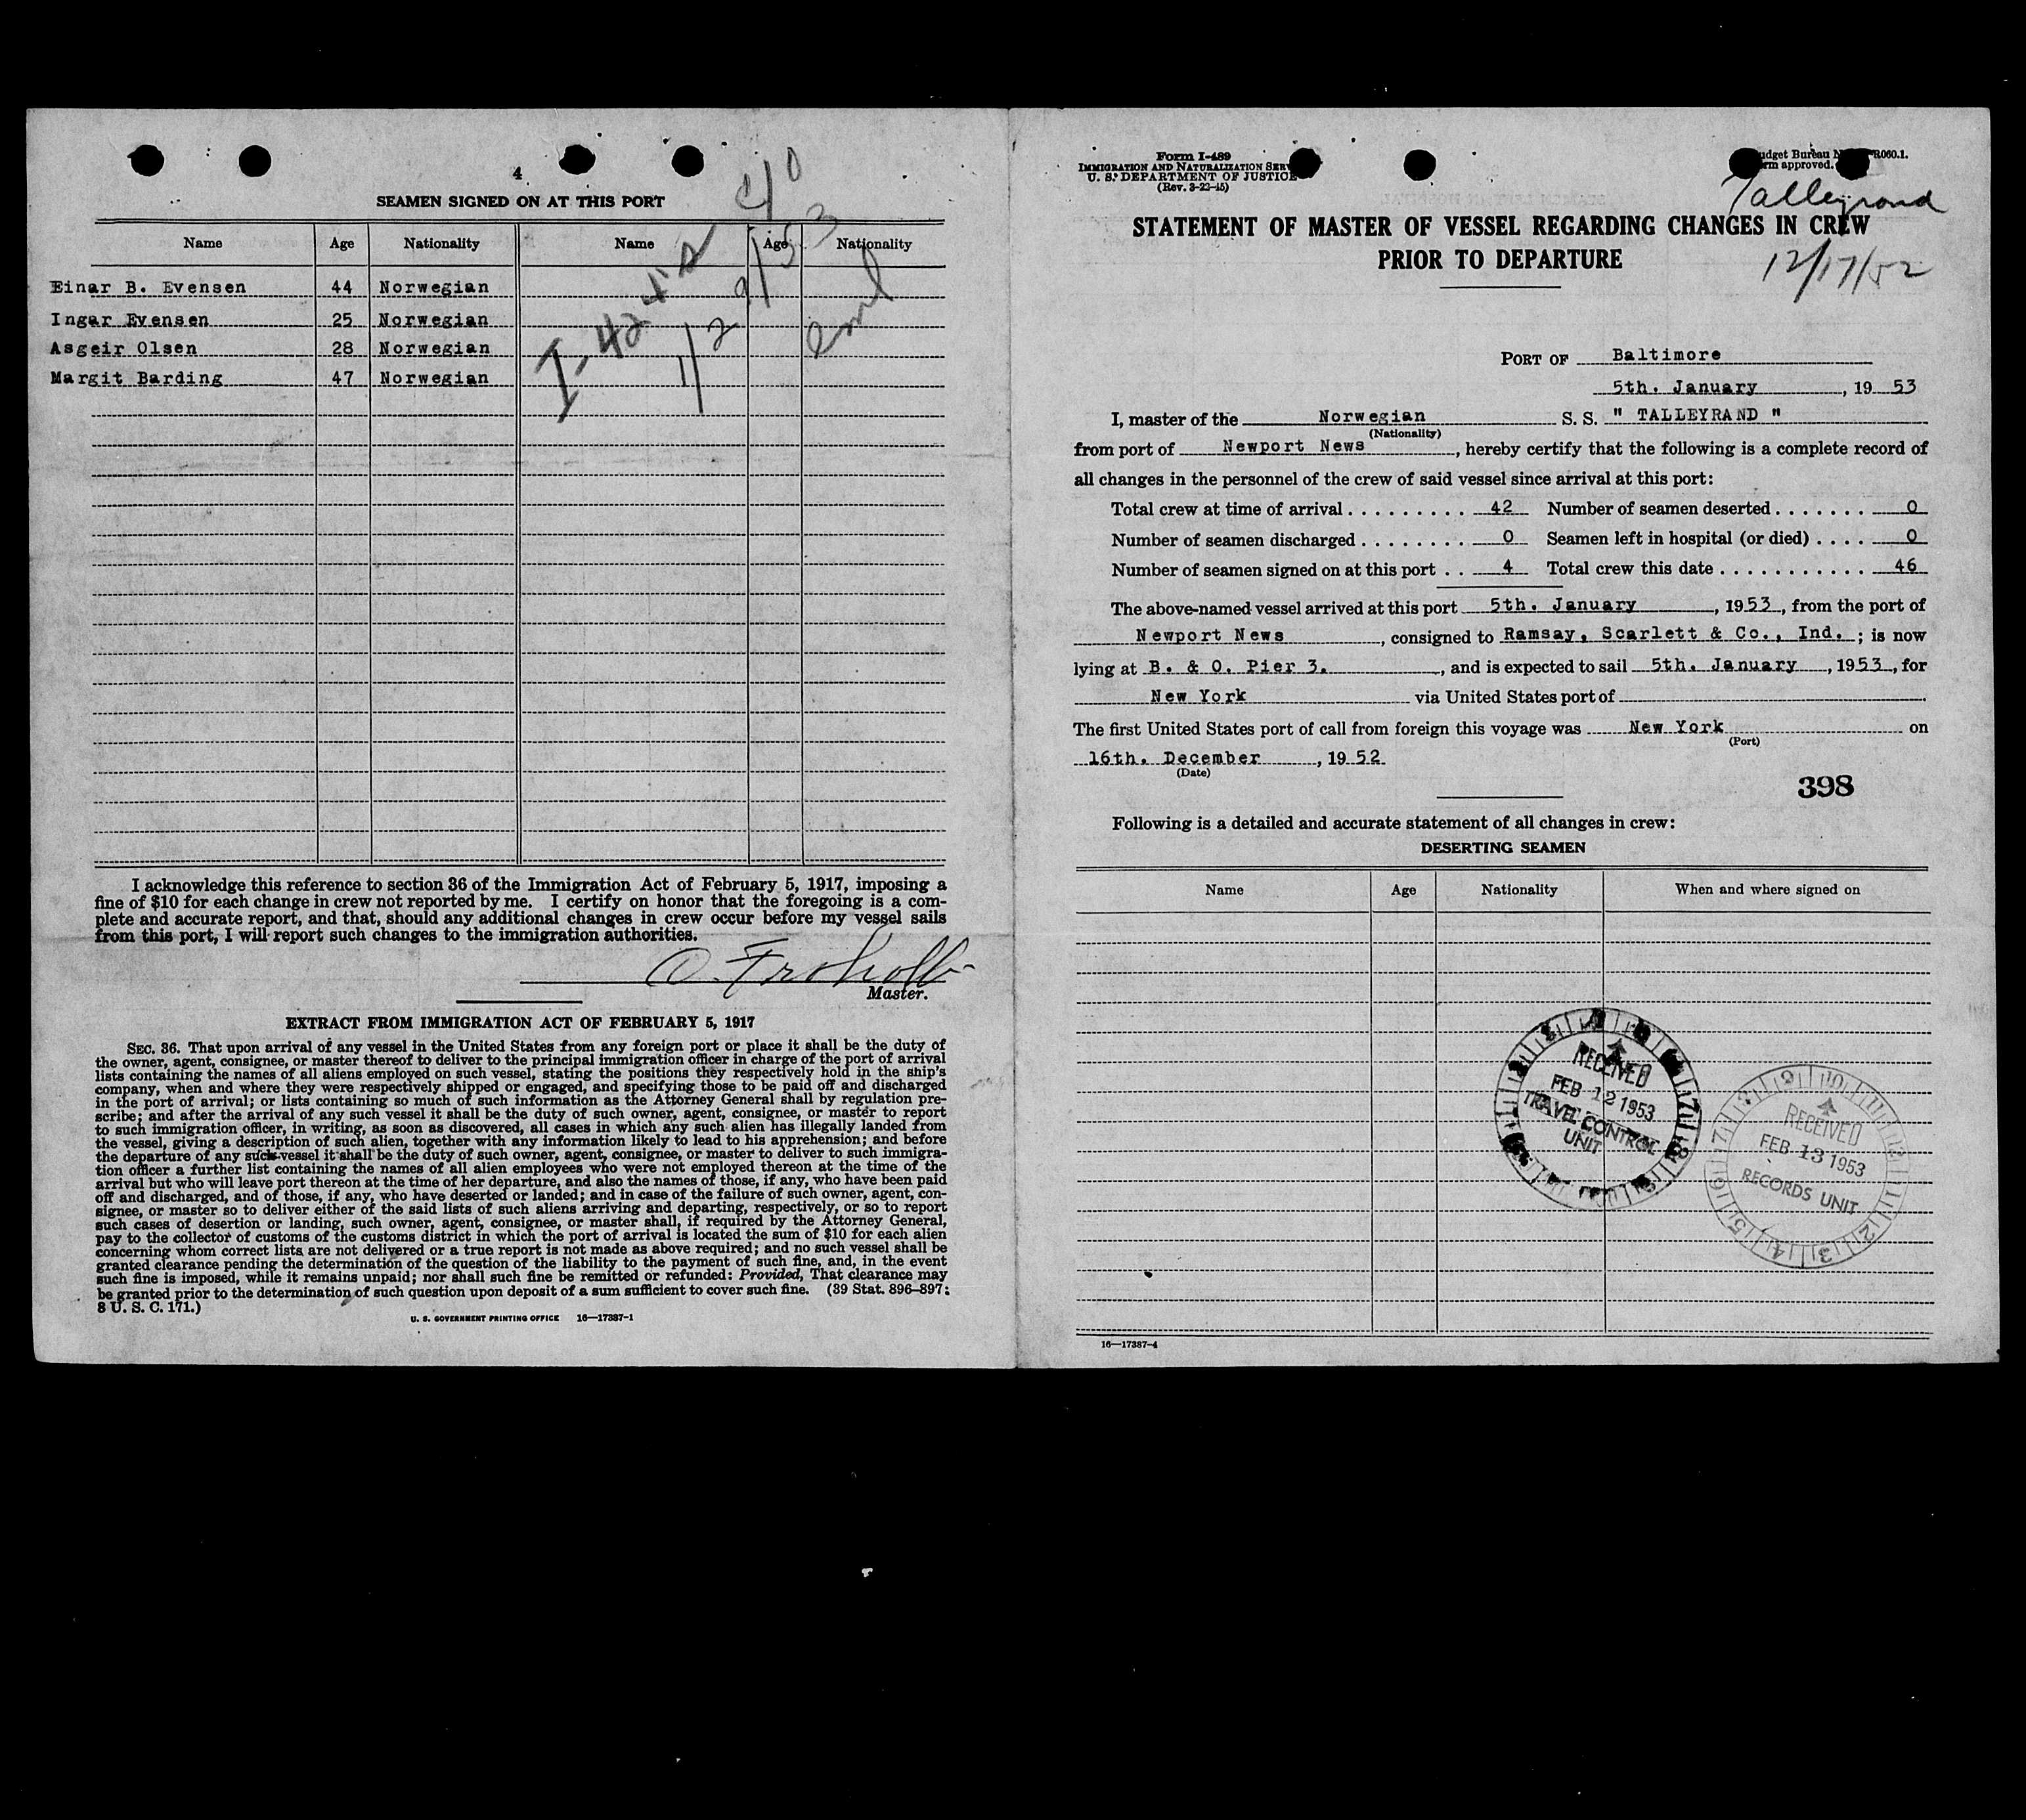 4
SEAMEN SIGNED ON AT THIS PORT
Name Age Nationality Name Age Nationality
Einar B. Evensen 44 Norwegian
Ingar Evensen 25 Norwegian
Asgeir Olsen 28 Norwegian
Margit Barding 47 Norwegian
I acknowledge this reference to section 36 of the Immigration Act of February 5, 1917, imposing a
fine of $10 for each change in crew not reported by me. I certify on honor that the foregoing is a com-
plete and accurate report, and that, should any additional changes in crew occur before my vessel sails
from this port, I will report such changes to the immigration authorities.
Master.
EXTRACT FROM IMMIGRATION ACT OF FEBRUARY 5, 1917
SEC. 36. That upon arrival of any vessel in the United States from any foreign port or place it shall be the duty of
the owner, agent, consignee, or master thereof to deliver to the principal immigration officer in charge of the port of arrival
lists containing the names of all aliens employed on such vessel, stating the positions they respectively hold in the ship's
company, when and where they were respectively shipped or engaged, and specifying those to be paid off and discharged
in the port of arrival; or lists containing so much of such information as the Attorney General shall by regulation pre-
scribe; and after the arrival of any such vessel it shall be the duty of such owner, agent, consignee, or master to report
to such immigration officer, in writing, as soon as discovered, all cases in which any such alien has illegally landed from
the vessel, giving a description of such alien, together with any information likely to lead to his apprehension; and before
the departure of any such vessel it shall be the duty of such owner, agent, consignee, or master to deliver to such immigra-
tion officer a further list containing the names of all alien employees who were not employed thereon at the time of the
arrival but who will leave port thereon at the time of her departure, and also the names of those, if any, who have been paid
off and discharged, and of those, if any, who have deserted or landed; and in case of the failure of such owner, agent, con-
signee, or master so to deliver either of the said lists of such aliens arriving and departing, respectively, or so to report
such cases of desertion or landing, such owner, agent, consignee, or master shall, if required by the Attorney General,
pay to the collector of customs of the customs district in which the port of arrival is located the sum of $10 for each alien
concerning whom correct lists are not delivered or a true report is not made as above required; and no such vessel shall be
granted clearance pending the determination of the question of the liability to the payment of such fine, and, in the event
such fine is imposed, while it remains unpaid; nor shall such fine be remitted or refunded: Provided, That clearance may
be granted prior to the determination of such question upon deposit of a sum sufficient to cover such fine. (39 Stat. 896–897;
8 U. S. C. 171.)
U. S. GOVERNMENT PRINTING OFFICE 16—17387-1
Form I-489
IMMIGRATION AND NATURALIZATION
U. S. DEPARTMENT OF JUSTICE
(Rev. 3-22-45)
Talleyrand
STATEMENT OF MASTER OF VESSEL REGARDING CHANGES IN CREW
PRIOR TO DEPARTURE
12/17/52
PORT OF Baltimore
5th. January, 1953
I, master of the Norwegian S. S. " TALLEYRAND "
(Nationality)
from port of Newport News, hereby certify that the following is a complete record of
all changes in the personnel of the crew of said vessel since arrival at this port:
Total crew at time of arrival . . . . . . . . . 42 Number of seamen deserted . . . . . . . 0
Number of seamen discharged . . . . . . . . 0 Seamen left in hospital (or died) . . . . 0
Number of seamen signed on at this port . . 4 Total crew this date . . . . . . . . . . . 46
The above-named vessel arrived at this port 5th. January, 1953, from the port of
Newport News, consigned to Ramsay, Scarlett & Co., Ind. ; is now
lying at B. & O. Pier 3., and is expected to sail 5th. January, 1953, for
New York via United States port of
The first United States port of call from foreign this voyage was New York on
(Port)
16th. December, 1952
(Date)
398
Following is a detailed and accurate statement of all changes in crew:
DESERTING SEAMEN
Name Age Nationality When and where signed on
RECEIVED
FEB 12 1953
TRAVEL CONTROL
UNIT
RECEIVED
FEB 13 1953
RECORDS UNIT
16—17387-4